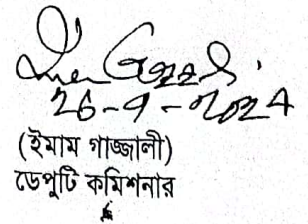 26-9-2024
(ইমাম গাজ্জালী)
ডেপুটি কমিশনার